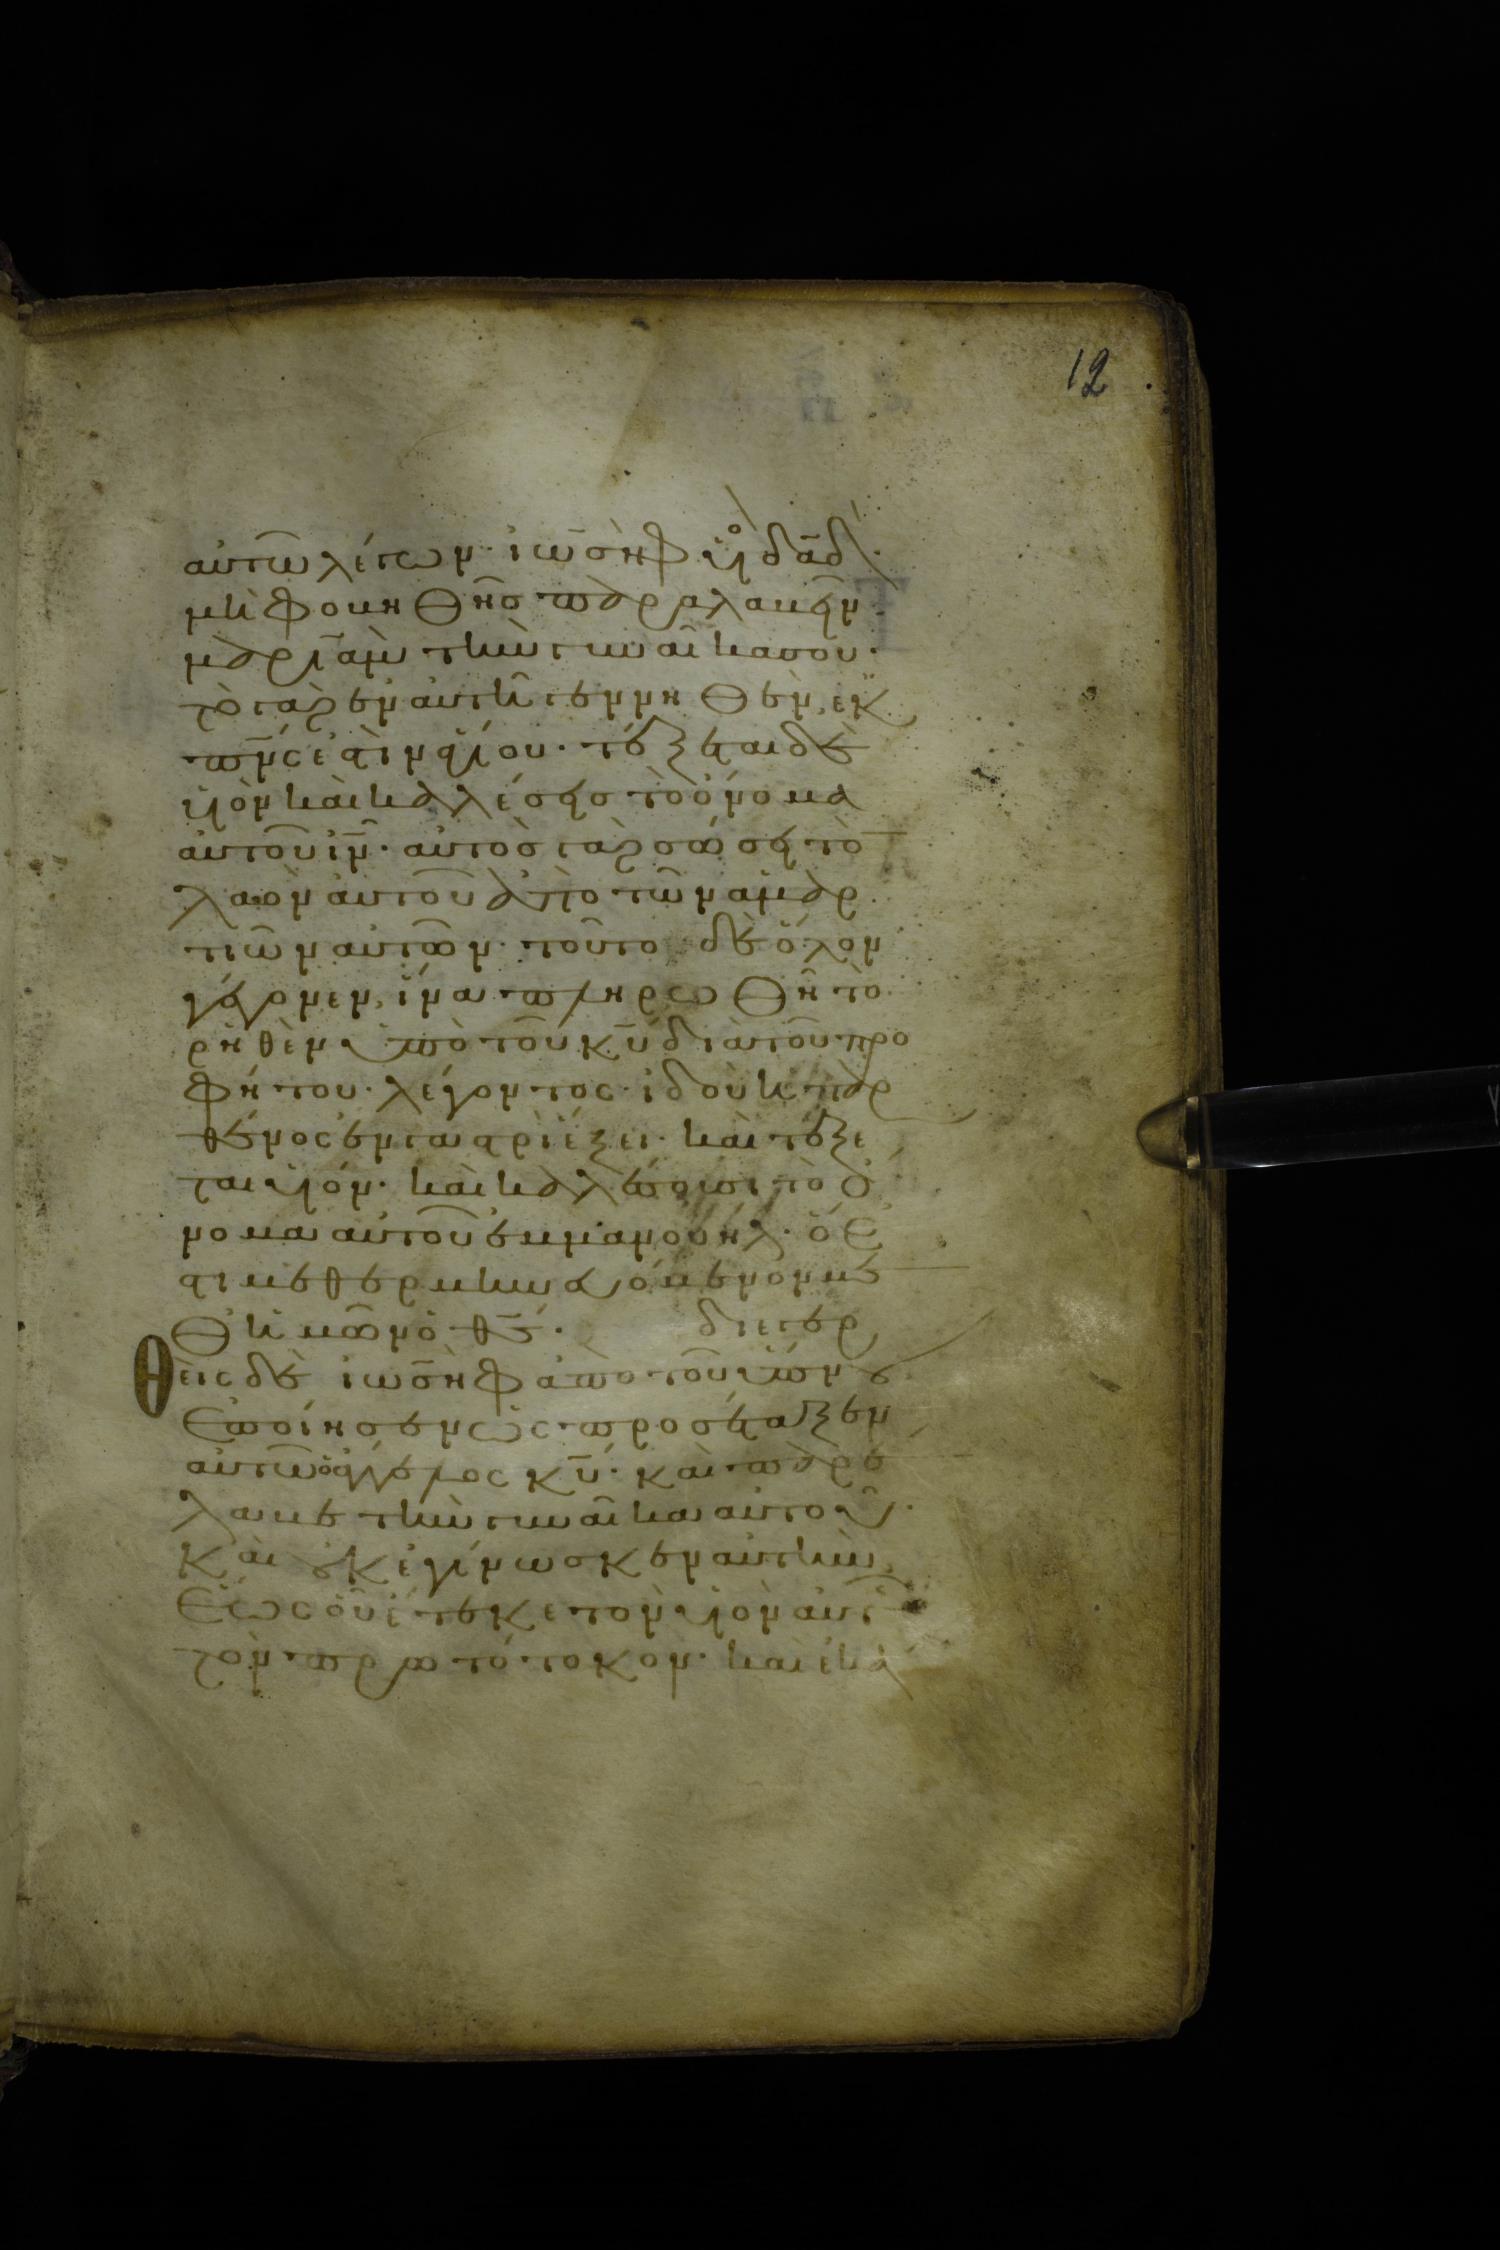 12
αὐτῶ λέγων· ἰωσὴφ υἱὸς δα̅δ·
μὴ φοβηθῆσ παραλαβεῖν
μαρϊὰμ τὴν γυναῖκα σου·
τὸ γὰρ ἐν αὐτῆ γεννηθὲν, ἐκ
π̅ν̅ς ἐστιν ἁγίου· τέξεται δὲ
υἱὸν καὶ καλέσεισ τὸ ὄνομα
αὐτοῦ ι̅ν̅· αὐτὸσ γὰρ σώσει τὸ
λαὸν αὐτοῦ ἀπὸ τῶν ἁμαρ
τιῶν αὐτῶν· τοῦτο δὲ ὅλον
γέγονεν, ἵνα πληρωθῆ τὸ
ῥηθὲν ὑπὸ τοῦ κ̅υ̅ διὰ τοῦ προ
φήτου· λέγοντος· ἰδοὺ ἡ παρ
θένος ἐν γαστρὶ ἕξει· καὶ τέξε
ται υἱόν· καὶ καλέσουσι τὸ ὄ
νομα αὐτοῦ ἐμμανουήλ· ὅ ἐ
στι μεθερμηνευόμενον με
θ' ἡμῶν ὁ θ̅ς̅· διεγερ
θεὶς δὲ ἰωσὴφ ἀπὸ τοῦ ὕπνου
ἐποίησεν ὡς προσέταξεν
αὐτῶ ὁ ἄγγελος κ̅υ̅· καὶ παρέ
λαβε τὴν γυναῖκα αὐτοῦ·
καὶ οὐκ ἐγίνωσκεν αὐτὴν
ἕως οὗ ἔτεκε τὸν υἱὸν αὐτῆ
τὸν πρωτότοκον· καὶ ἐκά